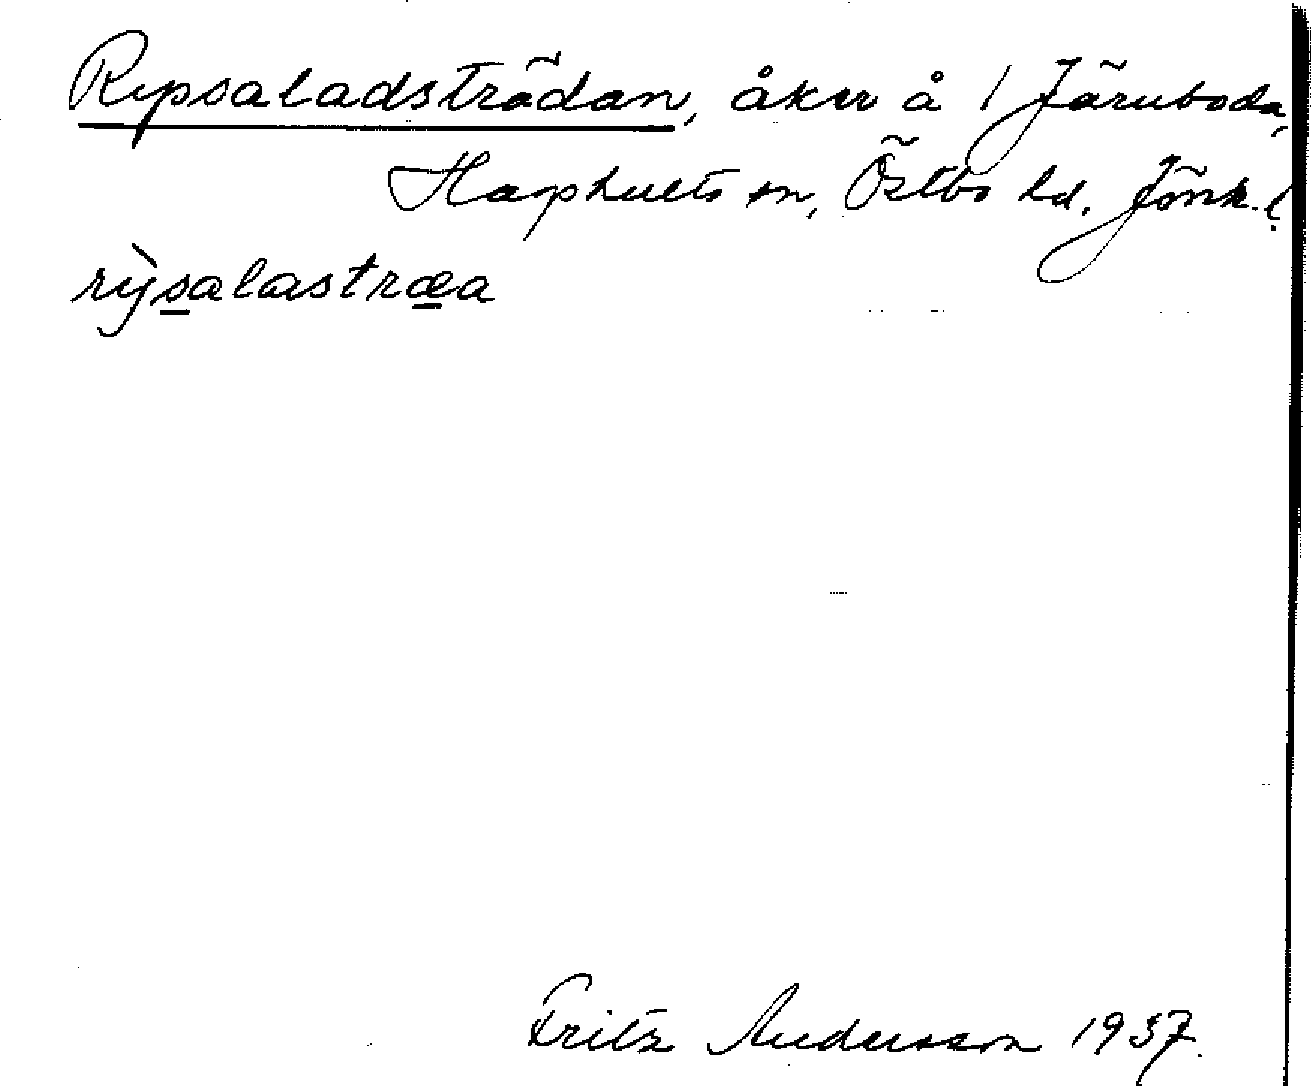 Rysaladsträdan, åker å 1 Järuboda,
Hagshults sn, Östbo hd. Jönk. l.
rỳsalastræa
Fritz Andersson 1937.